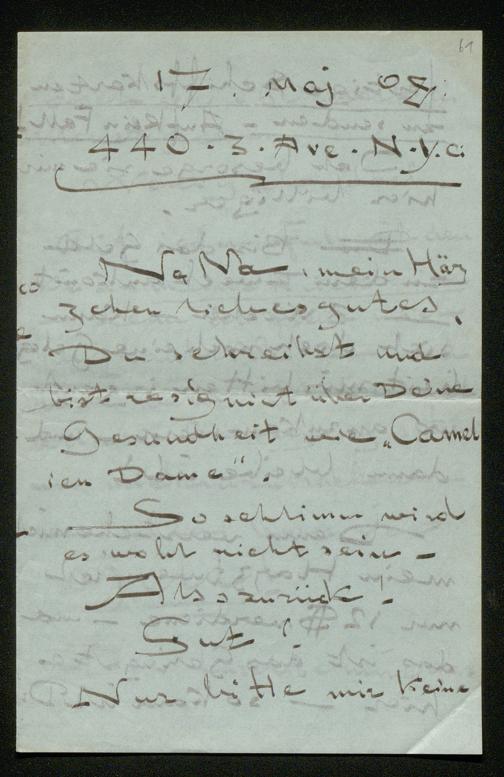 61
17. Maj 09.
440. 3. Ave. N.y.c.
Na Na, mein Här
zchen liebes gutes,
Du schreibst und
bist resignirt über Deine
Gesundheit wie „Camel
ien Dame".
So schlimm wird
es wohl nicht sein –
Also zurück –
Gut!
Nur bitte mir keine